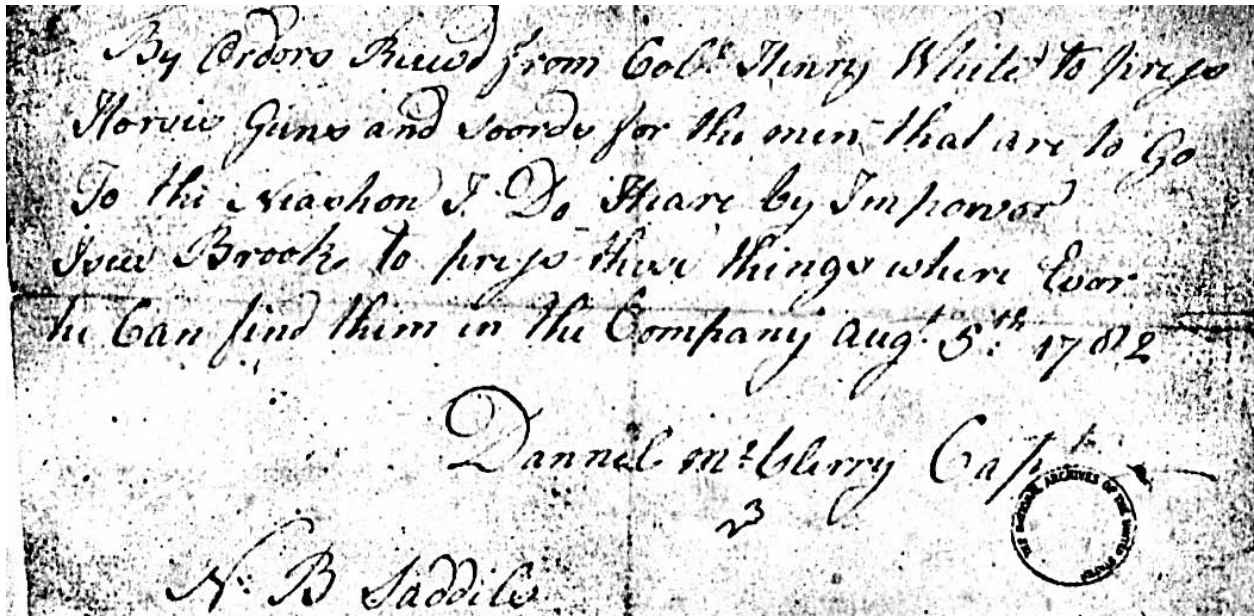 By Ordors Recivd from Colo. Henry White to press
Horsis Guns and Soords for the men that are to Go
To the Neashon I Do Heare by Imporvor
Brooks to press these things where Evor
he Can find them in the Company Augt. 5th. 1782
Dannel Mc Capt
N. B Saddils
THE NATIONAL ARCHIVES OF THE UNITED STATES